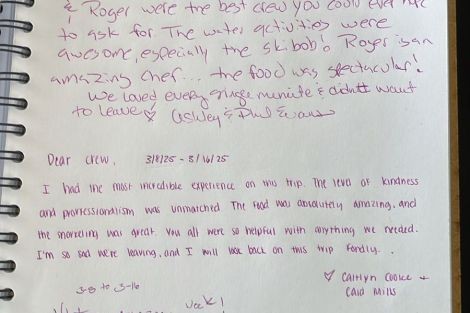 & Roger were the best crew you could ever
to ask for. The water activities were
awesome, especially the skibob! Roger is an
amazing chef... the food was spectacular!
We loved every single minute & didn't want
to leave ♡ Ashley & Phil Evans
Dear crew, 3/8/25 - 3/16/25
I had the most incredible experience on this trip. The level of kindness
and professionalism was unmatched. The food was absolutely amazing, and
the snorkeling was great. You all were so helpful with anything we needed.
I'm so sad we're leaving, and I will look back on this trip fondly.
♡ Caitlyn Cooke +
Caid Mills
3-8 to 3-16
week!